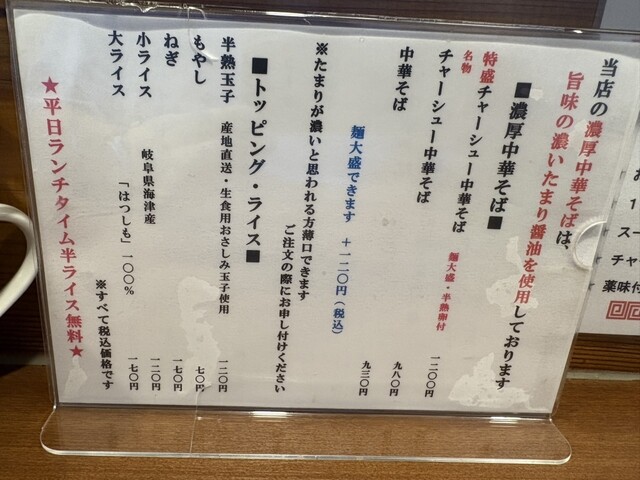 お
1
スー
チャー
薬味付
当店の濃厚中華そばは、
旨味の濃いたまり醤油を使用しております
■濃厚中華そば■
名物
特盛チャーシュー中華そば 麺大盛・半熟卵付 一二〇〇円
チャーシュー中華そば 九八〇円
中華そば 九三〇円
麺大盛できます +一二〇円(税込)
※たまりが濃いと思われる方薄口できます
ご注文の際にお申し付けください
■トッピング・ライス■
半熟玉子 産地直送・生食用おさしみ玉子使用 一二〇円
もやし 七〇円
ねぎ 一七〇円
小ライス 岐阜県海津産 一二〇円
大ライス 「はつしも」一〇〇% 一七〇円
※すべて税込価格です
★平日ランチタイム半ライス無料★